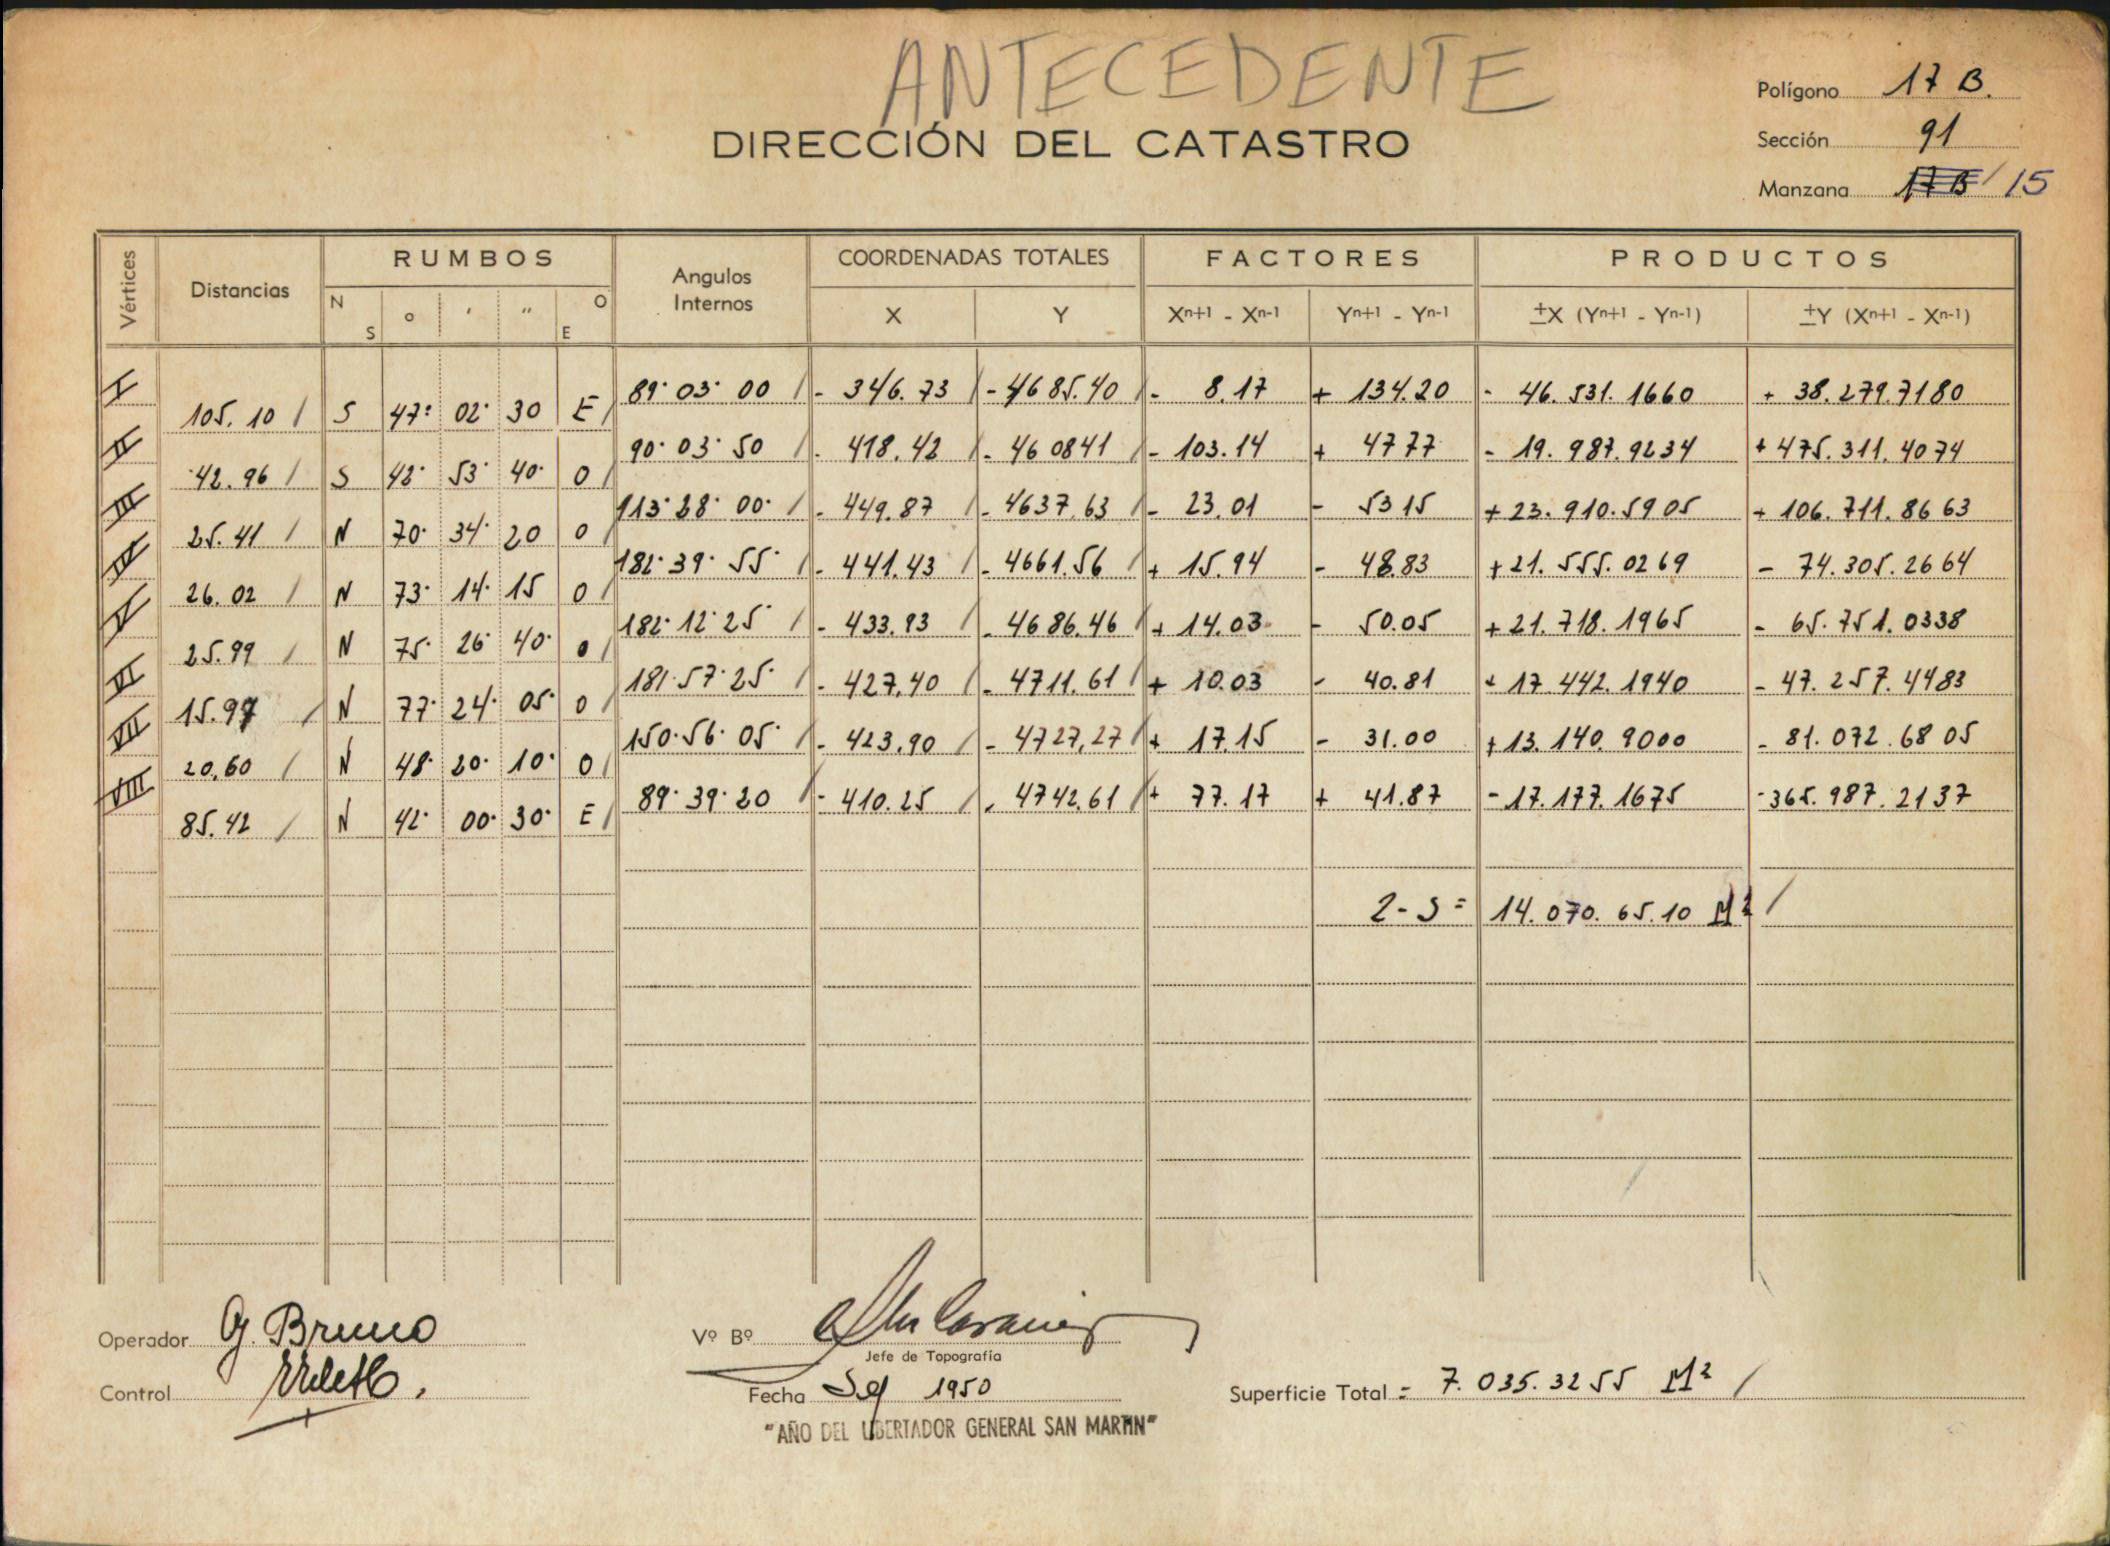 ANTECEDENTE
DIRECCIÓN DEL CATASTRO
Polígono 17 B.
Sección 91
Manzana 17 B / 15
Vértices Distancias RUMBOS Angulos Internos COORDENADAS TOTALES FACTORES PRODUCTOS
N S o ' " O E X Y Xn+1 - Xn-1 Yn+1 - Yn-1 ±X (Yn+1 - Yn-1) ±Y (Xn+1 - Xn-1)
I 89° 03' 00 / - 346.73 / - 4685.40 / - 8.17 + 134.20 - 46.531.1660 + 38.279.7180
105.10 / S 47° 02' 30 E /
II 90° 03' 50 / - 418.42 / - 460841 / - 103.14 + 4777 - 19.987.9234 + 475.311.4074
42.96 / S 42° 53' 40" O /
III 113° 28' 00" / - 449.87 / - 4637.63 / - 23.01 - 5315 + 23.910.5905 + 106.711.8663
25.41 / N 70° 34' 20 O /
IV 182° 39' 55" / - 441.43 / - 4661.56 / + 15.94 - 48.83 + 21.555.0269 - 74.305.2664
26.02 / N 73° 14' 15 O /
V 182° 12' 25" / - 433.93 / - 4686.46 / + 14.03 - 50.05 + 21.718.1965 - 65.751.0338
25.99 / N 75° 26' 40" O /
VI 181° 57' 25" / - 427.40 / - 4711.61 / + 10.03 - 40.81 + 17.442.1940 - 47.257.4483
15.97 / N 77° 24' 05" O /
VII 150° 56' 05" / - 423.90 / - 4727,27 / + 17.15 - 31.00 + 13.140.9000 - 81.072.6805
20.60 / N 48° 20' 10" O /
VIII 89° 39' 20 / - 410.25 / - 4742.61 / + 77.17 + 41.87 - 17.177.1675 - 365.987.2137
85.42 / N 42° 00' 30" E /
2-S = 14.070.65.10 M² /
Operador G. Bruno
Control
Vº Bº
Jefe de Topografía
Fecha 1950
"AÑO DEL LIBERTADOR GENERAL SAN MARTIN"
Superficie Total = 7.035.3255 M² /